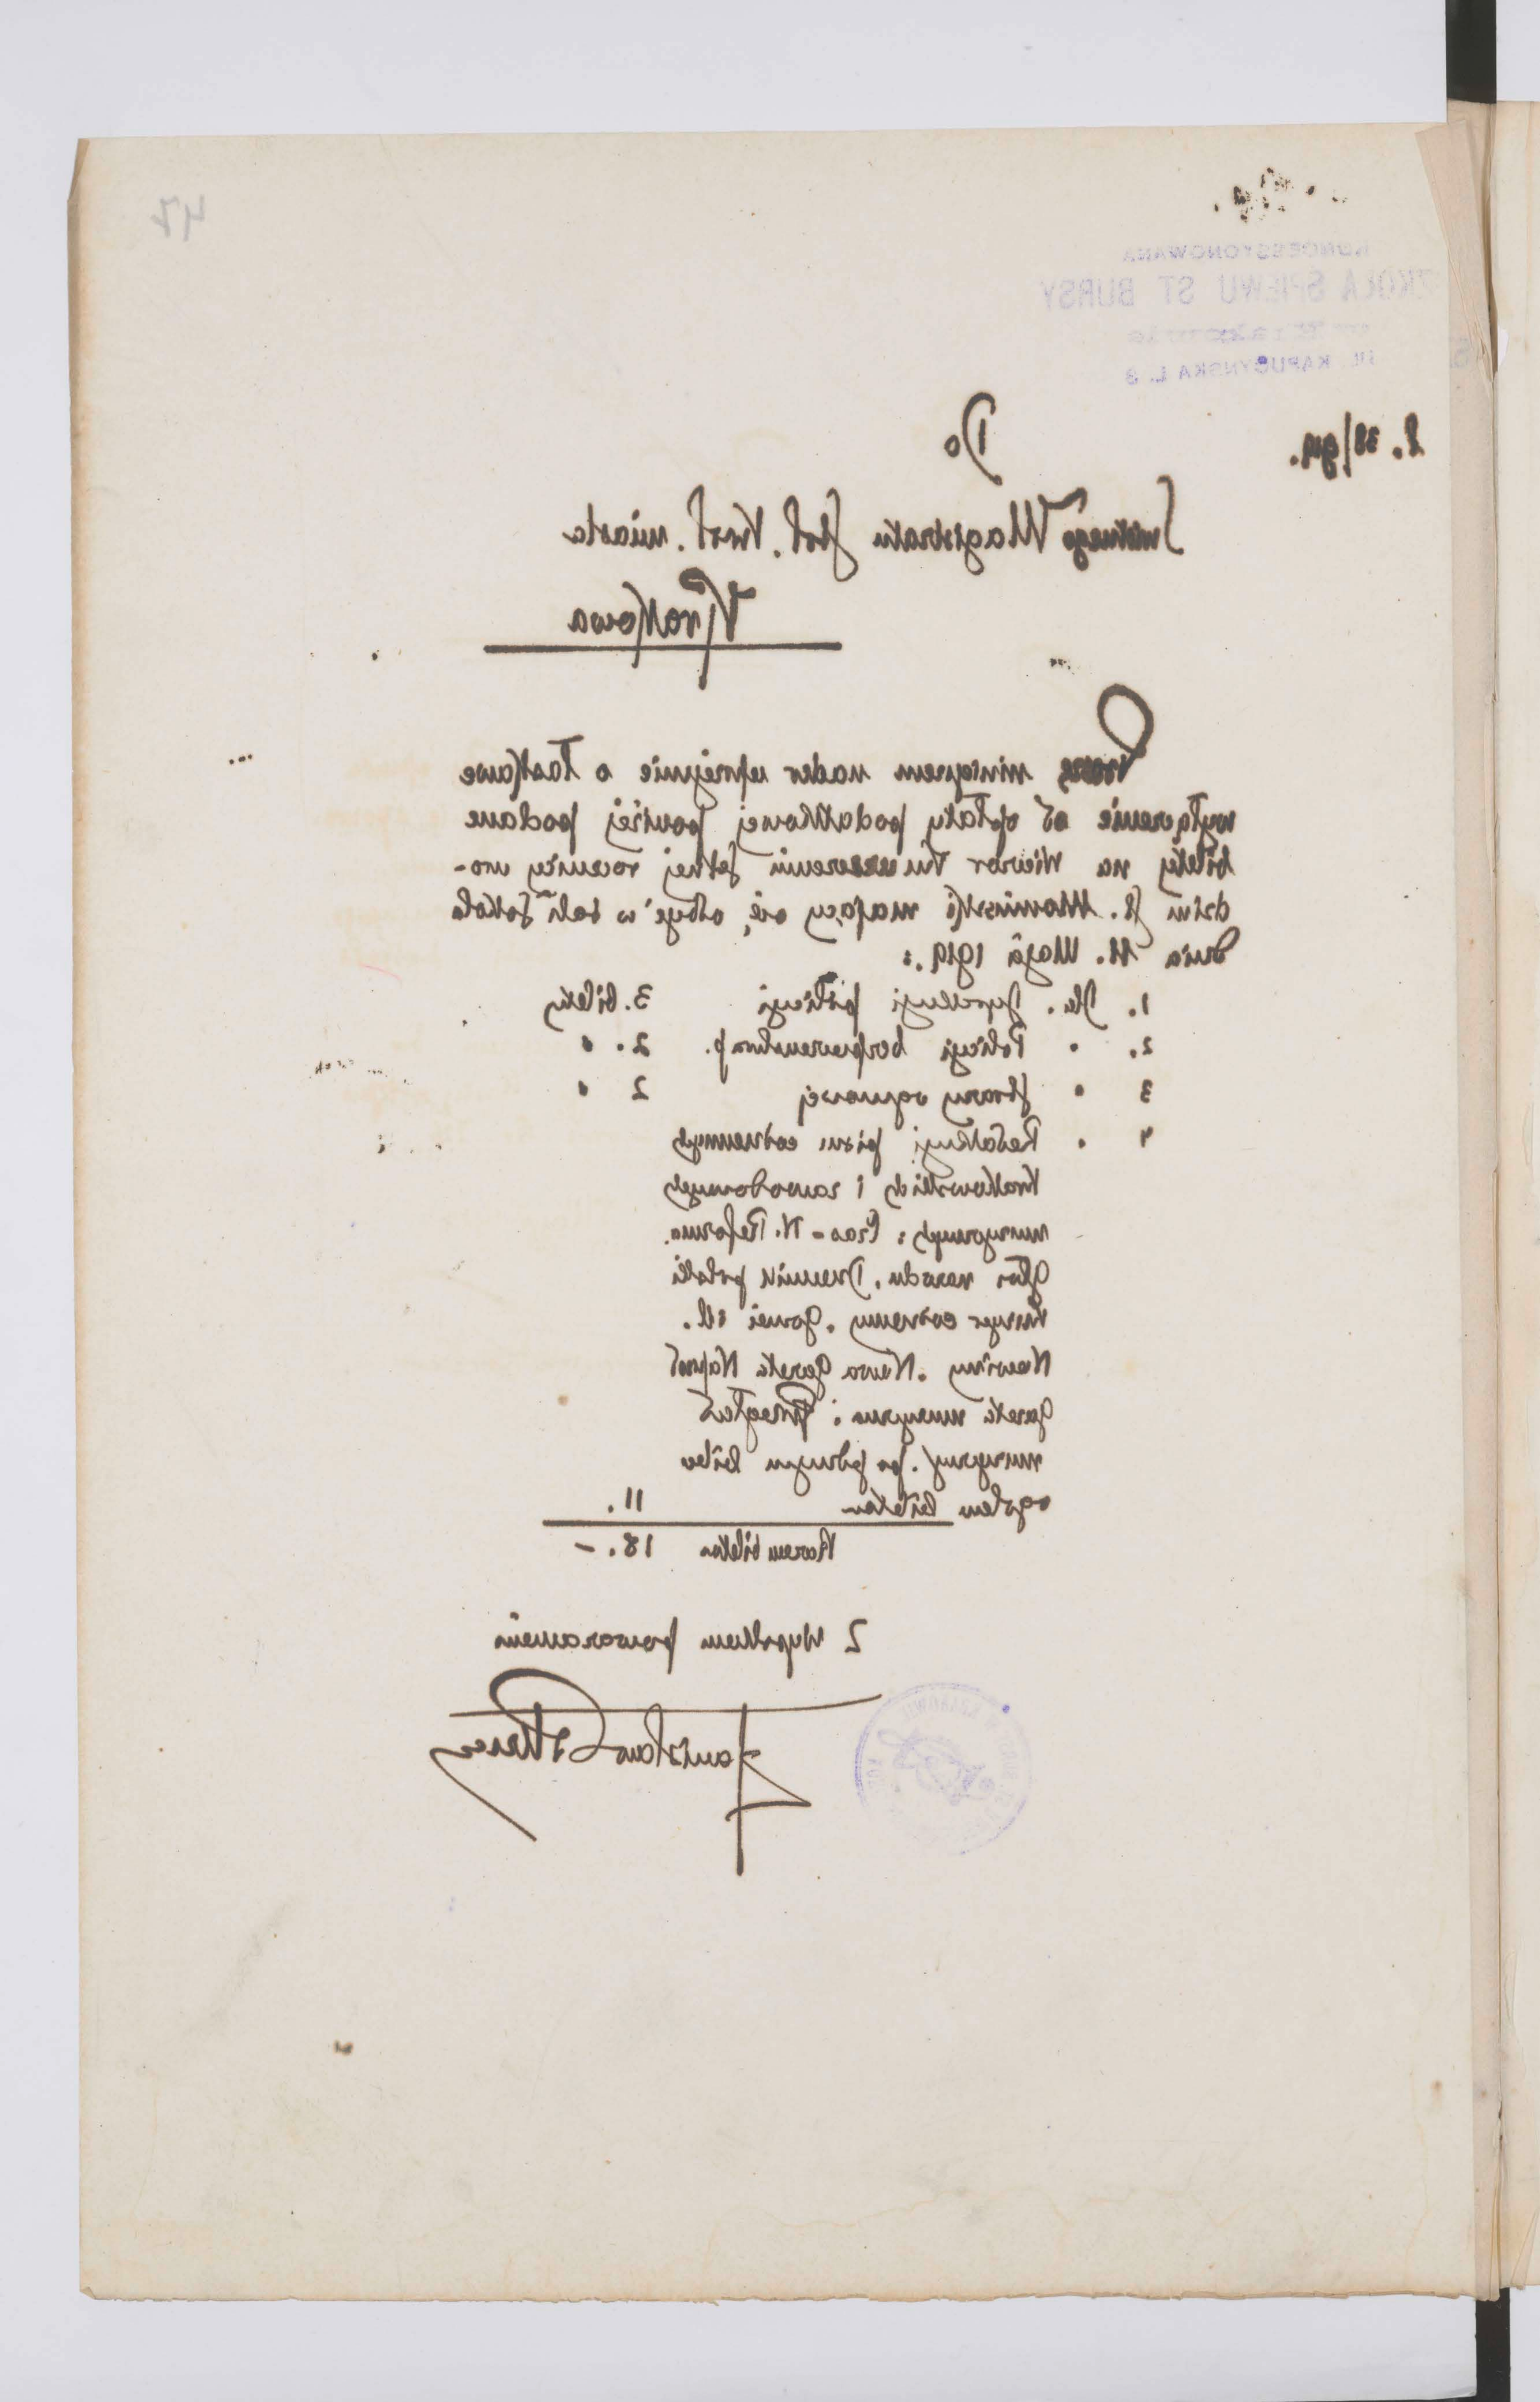 47
KONCESSYONOWANA
SZKOŁA ŚPIEWU ST BURSY
w Krakowie
UL. KAPUCYŃSKA L. 3
L. 38/919.
Do
Świetnego Magistratu stoł. Król. miasta
Krakowa
Proszę niniejszem nader uprzejmie o łaskawe
wyłączenie od opłaty podatkowej poniżej podane
bilety na Wieczor ku uczczeniu setnej rocznicy uro-
dzin St. Moniuszki mający się odbyć w sali Sokoła
dnia 11. Maja 1919.:
1. Dla Dyrekcyi policyi 3. bilety
2. " Policyi bezpieczeństwa p. 2. "
3 " straży ogniowej 2 "
4 " Redakcyi pism codziennych
Krakowskich i zawodowych
muzycznych: Czas - N. Reforma.
Głos narodu. Dziennik polski
Kuryer codzienny. Goniec ill.
Nowiny. Nowa Gazeta Naprzód
Gazeta muzyczna i Przegląd
muzyczny. po jednym bilecie
ogółem biletów 11.
Razem biletów 18. -
Z wysokiem poważaniem
Stanisław Bursa